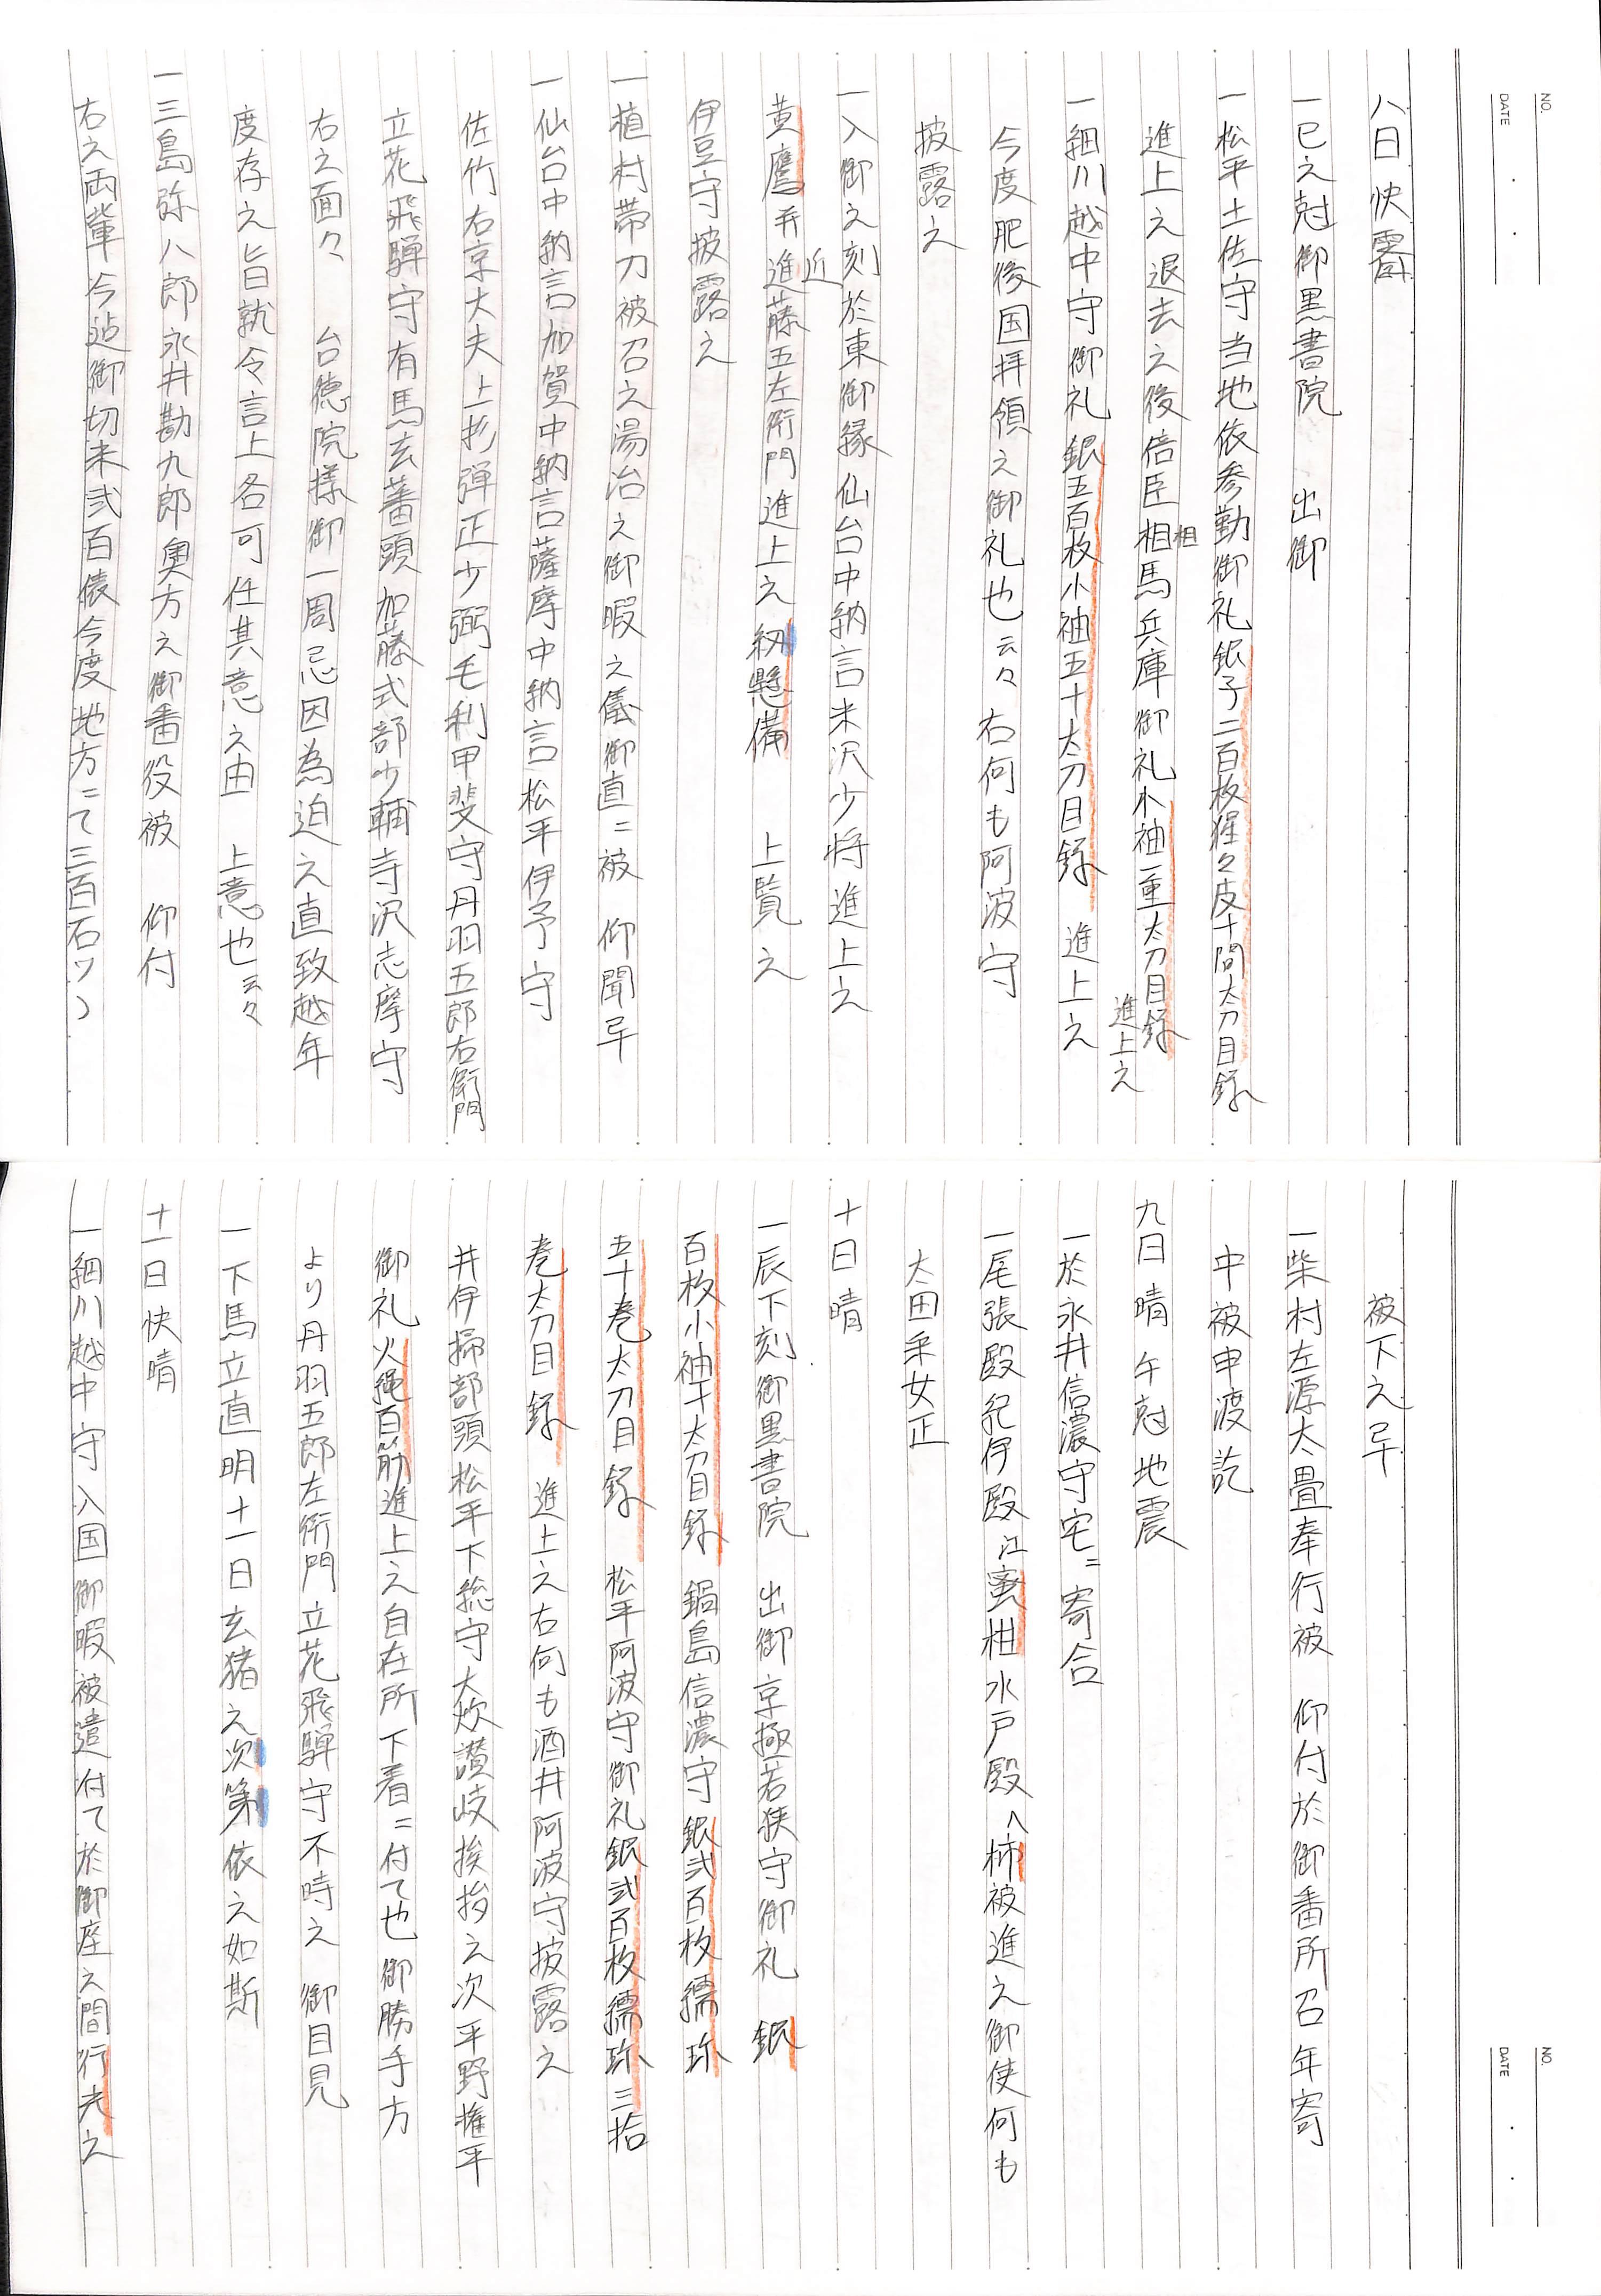 NO.
DATE ・ ・
八日快霽
一巳之尅御黒書院　出御
一松平土佐守当地依参勤御礼銀子二百枚猩々皮十間太刀目録
進上之退去之後倍臣相馬兵庫御礼小袖一重太刀目録
相
進上之
一細川越中守御礼銀五百枚小袖五十太刀目録　進上之
今度肥後国拝領之御礼也云々右何も阿波守
披露之
一入御之刻於東御縁仙台中納言米沢少将進上之
黄鷹并進藤五左衛門進上之 懸備　上覧之
近
伊豆守披露之
一植村帯刀被召之湯治之御暇之儀御直ニ被　仰聞畢
一仙台中納言加賀中納言薩摩中納言松平伊予守
佐竹右京大夫上杉弾正少弼毛利甲斐守丹羽五郎右衛門
立花飛騨守有馬玄蕃頭加藤式部少輔寺沢志摩守
右之面々　台徳院様御一周忌因為迫之直致越年
度存之旨就令言上各可任其意之由　上意也云々
一三島弥八郎永井勘九郎奥方之御番役被　仰付
右之両輩今迠御切米弐百俵今度地方ニて三百石ツヽ
NO.
DATE ・ ・
被下之畢
一柴村左源太畳奉行被　仰付於御番所召年寄
中被申渡訖
九日晴　午尅地震
一於永井信濃守宅ニ寄合
一尾張殿紀伊殿江蜜柑水戸殿へ柿被進之御使何も
太田采女正
十日晴
一辰下刻御黒書院　出御京極若狭守御礼　銀
百枚小袖十太刀目録　鍋島信濃守　銀弐百枚繻珎
五十巻太刀目録　松平阿波守御礼銀弐百枚繻珎三拾
巻太刀目録　進上之右何も酒井阿波守披露之
井伊掃部頭松平下総守大炊讃岐挨拶之次平野権平
御礼火縄百筋進上之自在所下着ニ付て也御勝手方
より丹羽五郎左衛門立花飛騨守不時之　御目見
一下馬立直明十一日玄猪之次第依之如斯
十一日快晴
一細川越中守入国御暇被遣付て於御座之間行光之